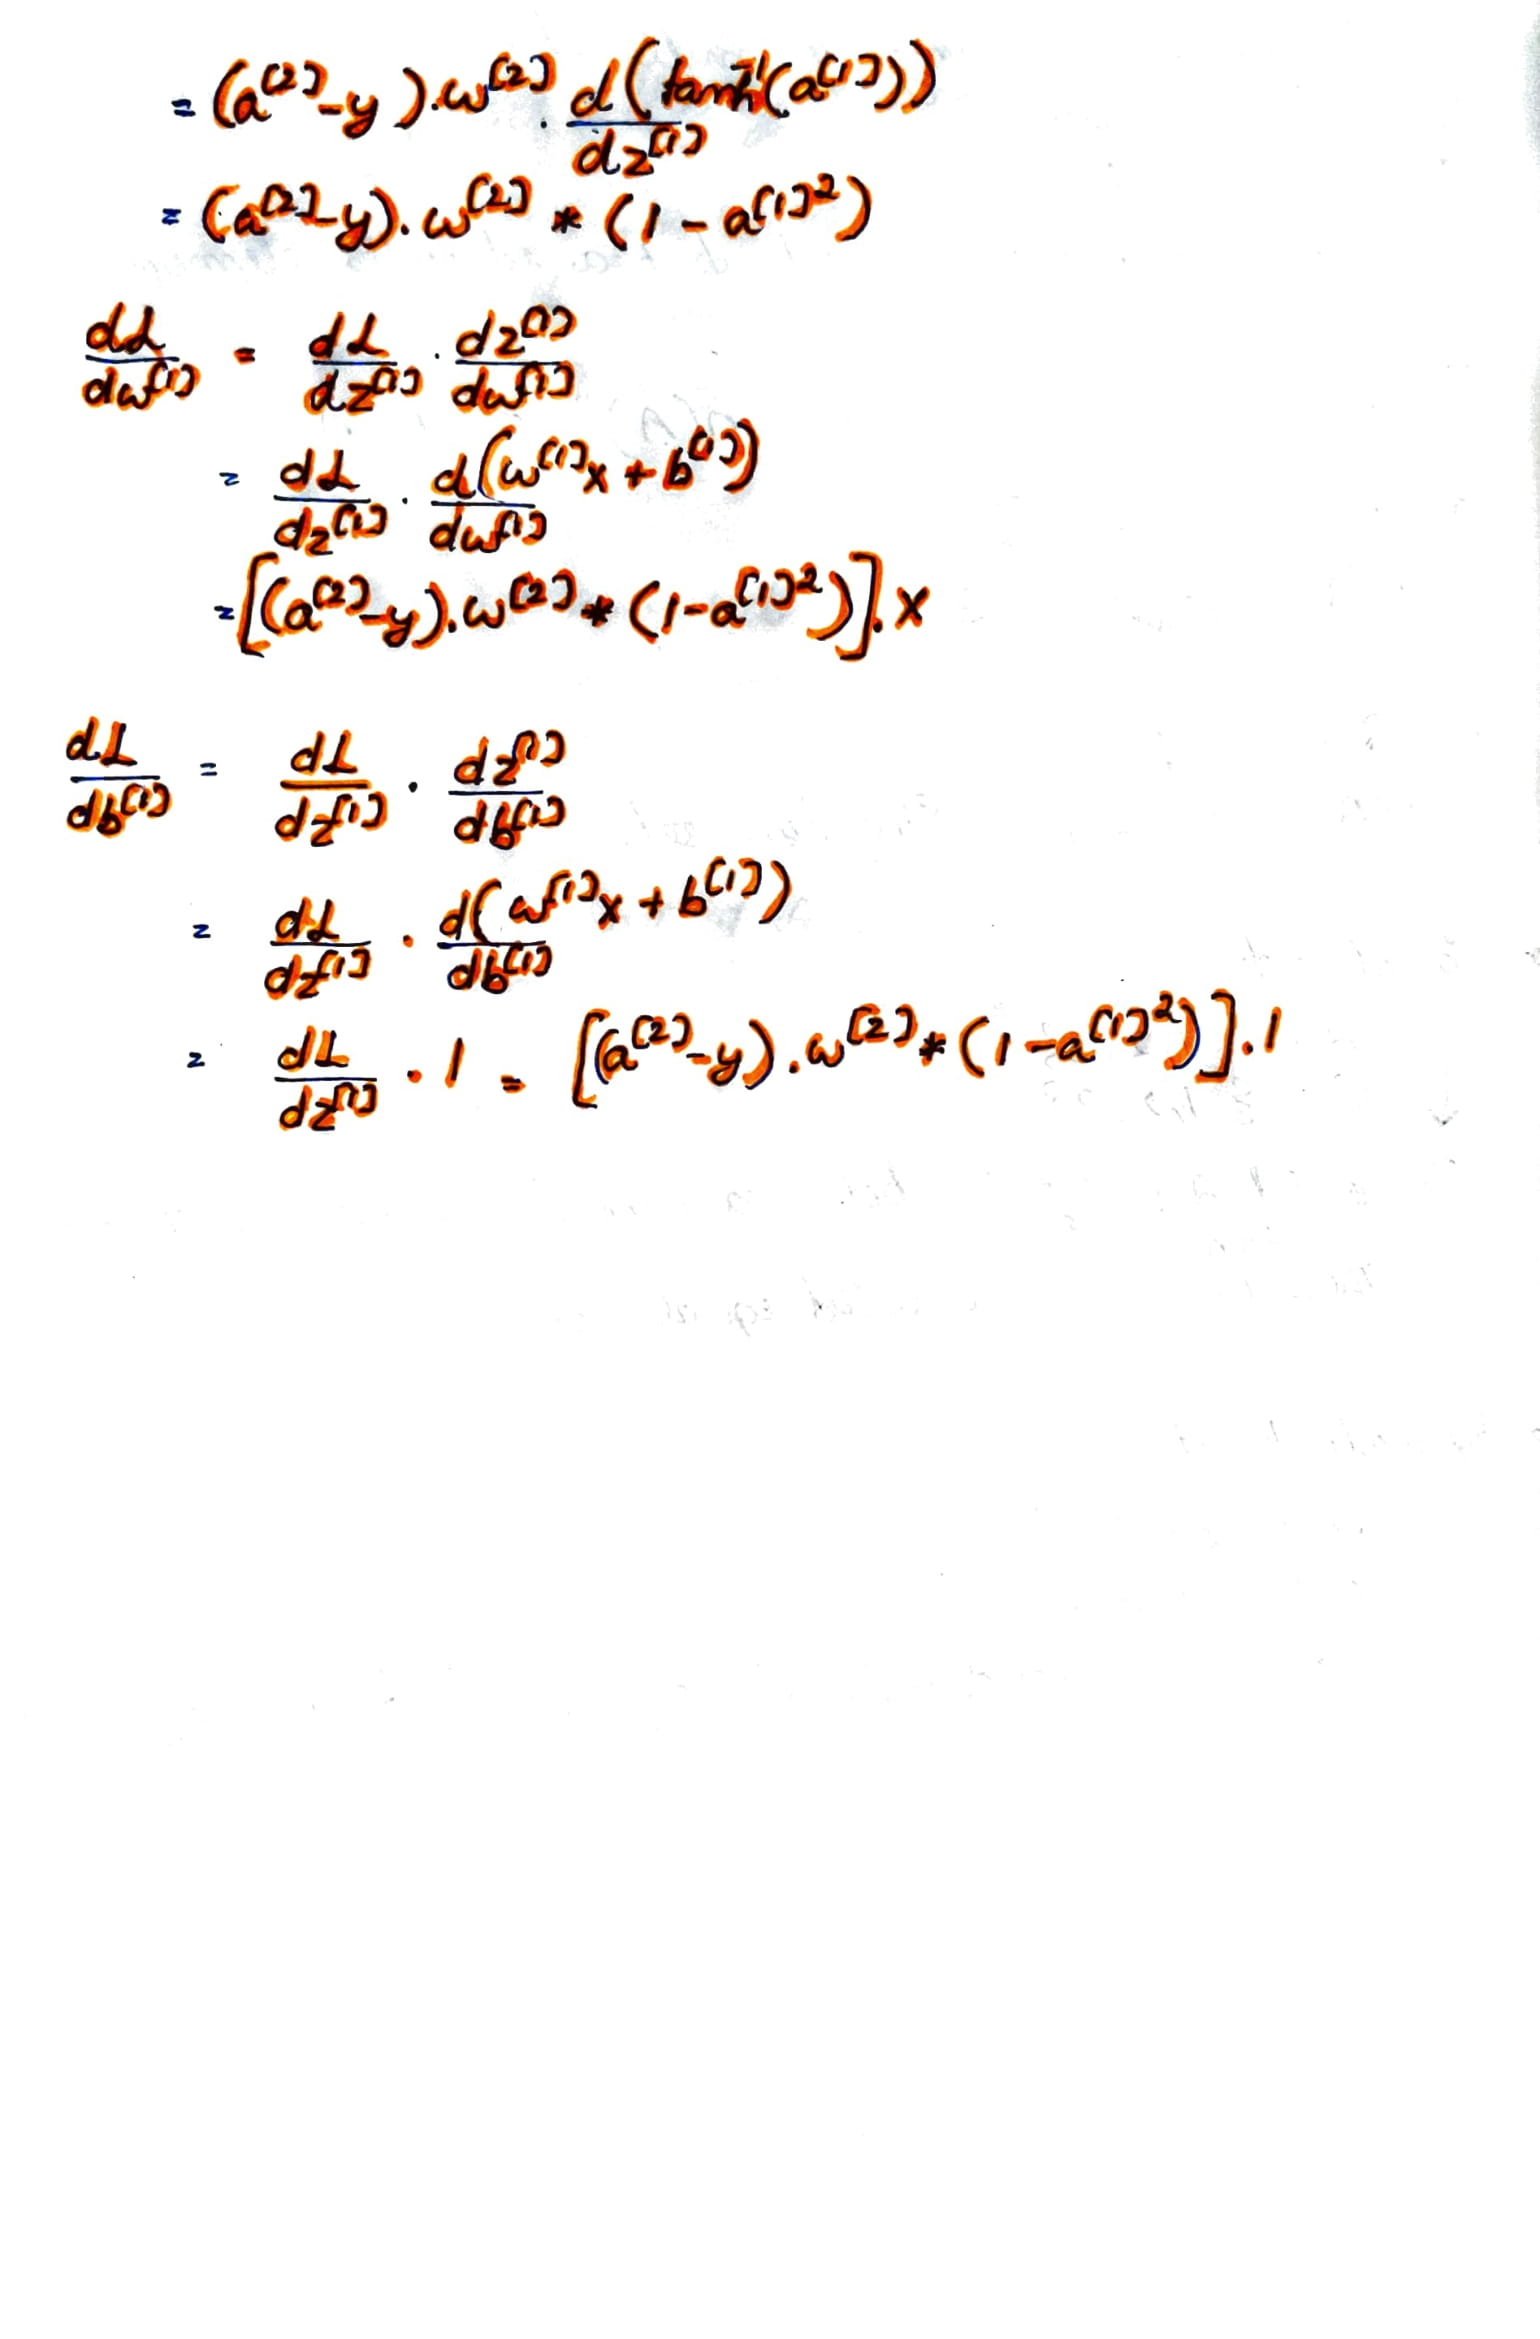 = (a^[2] - y).w^[2] . d(tanh^-1(a^[1])) / dz^[1]
= (a^[2] - y).w^[2] * (1 - a^[1]^2)
dL/dw^[1] = dL/dz^[1] . dz^[1]/dw^[1]
= dL/dz^[1] . d(w^[1]x + b^[1])/dw^[1]
= [(a^[2] - y).w^[2] * (1 - a^[1]^2)].x
dL/db^[1] = dL/dz^[1] . dz^[1]/db^[1]
= dL/dz^[1] . d(w^[1]x + b^[1])/db^[1]
= dL/dz^[1] . 1 = [(a^[2] - y).w^[2] * (1 - a^[1]^2)].1